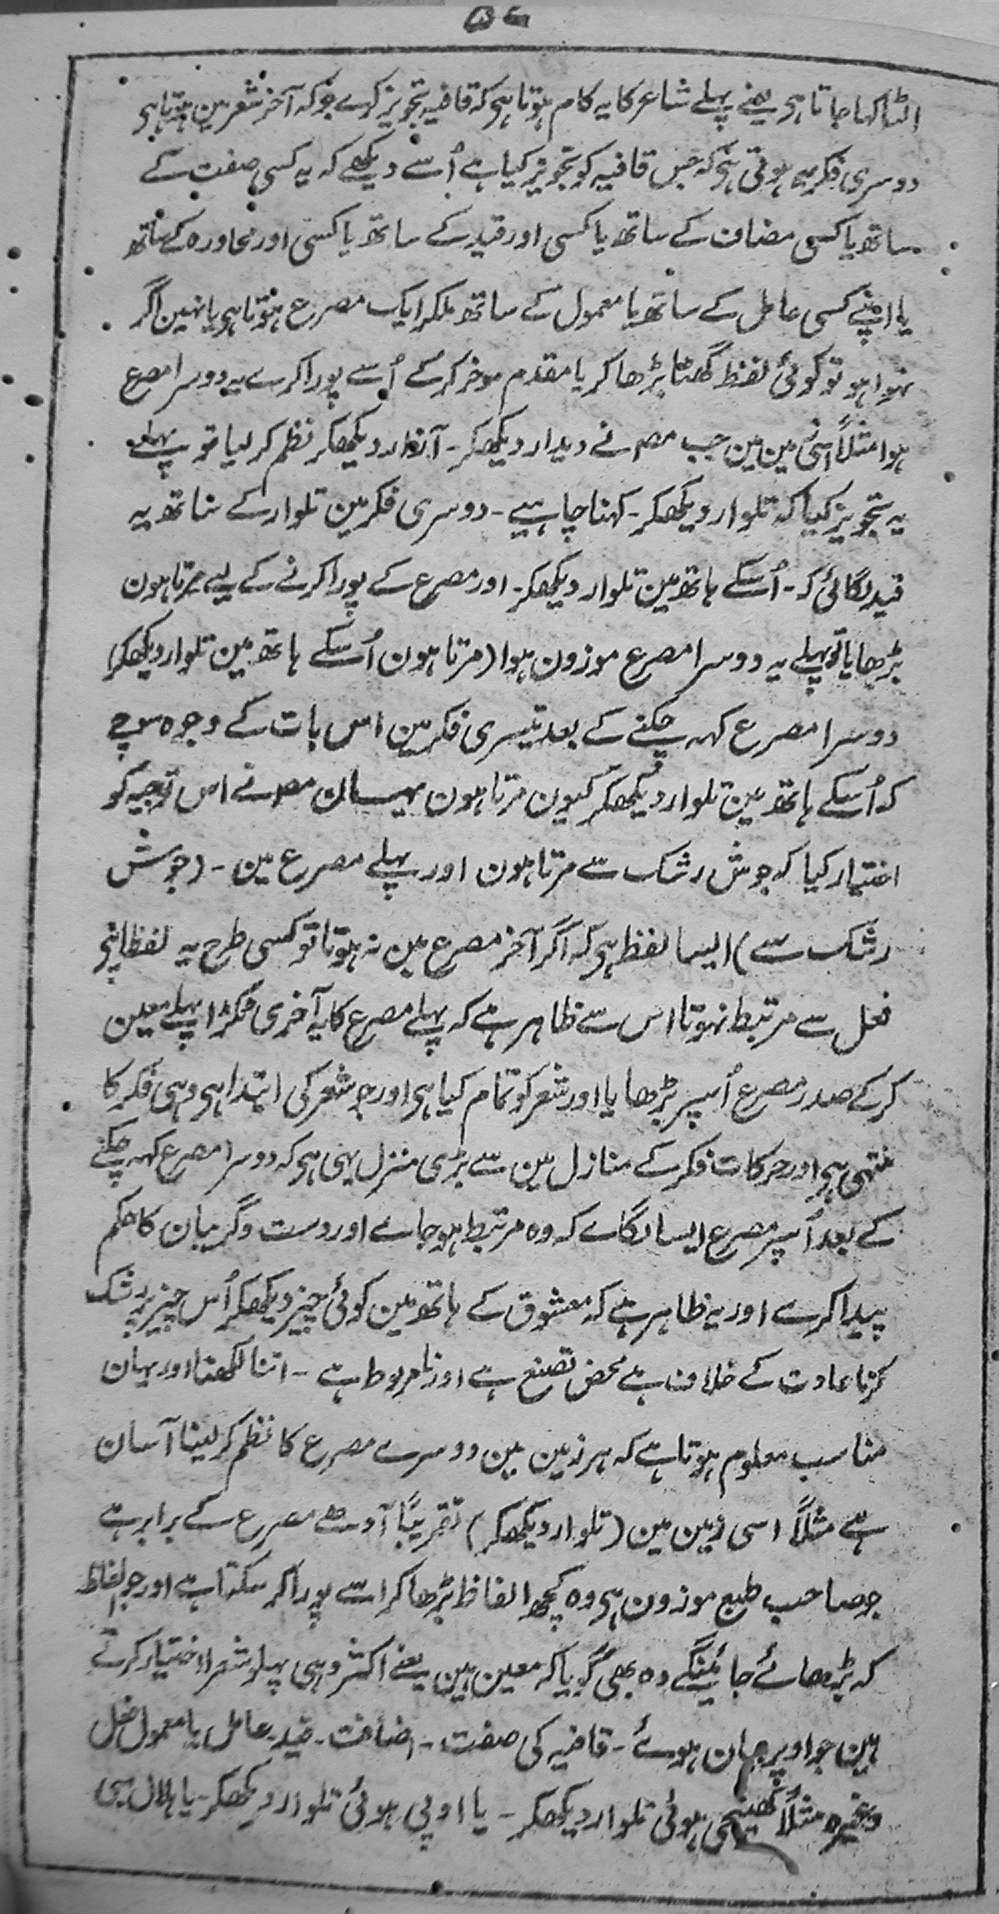 ۵۷
الٹا کہا جاتا ہی یعنے پہلے شاعر کا یہ کام ہوتا ہی کہ قافیہ تجویز کرے جو کہ آخر شعر مین ہوتا ہی
دوسری فکر یہ ہوتی ہی کہ جس قافیہ کو تجویز کیا ہے اُسے دیکھے کہ یہ کسی صفت کے
ساتھ یا کسی مضاف کے ساتھ یا کسی اور قید کے ساتھ یا کسی اور محاورہ کے ساتھ
یا اپنے کسی عامل کے ساتھ یا معمول کے ساتھ ملکر ایک مصرع ہوتا ہی یا نہین اگر
نہوا ہو تو کوئی لفظ گھٹا بڑھا کر یا مقدم موخر کرکے اُسے پورا کرے یہ دوسرا مصرع
ہوا مثلاً اسی زمین مین جب مصنف نے دیدار دیکھکر ۔ آزار دیکھکر نظم کر لیا تو پہلے
یہ تجویز کیا کہ تلوار دیکھکر ۔ کہنا چاہیے ۔ دوسری فکر مین تلوار کے ساتھ یہ
قید لگائی کہ ۔ اُسکے ہاتھ مین تلوار دیکھکر ۔ اور مصرع کے پورا کرنے کے لیے مرتا ہون
بڑھایا تو پہلے یہ دوسرا مصرع موزون ہوا (مرتا ہون اُسکے ہاتھ مین تلوار دیکھکر)
دوسرا مصرع کہہ چکنے کے بعد تیسری فکر مین اس بات کے وجوہ سوچے
کہ اُسکے ہاتھ مین تلوار دیکھکر کیون مرتا ہون یہان مصنف نے اس توجیہ کو
اختیار کیا کہ جوش رشک سے مرتا ہون اور پہلے مصرع مین ۔ (جوش
رشک سے) ایسا لفظ ہی کہ اگر آخر مصرع مین نہ ہوتا تو کسی طرح یہ لفظ اپنے
فعل سے مرتبط نہوتا اس سے ظاہر ہے کہ پہلے مصرع کا یہ آخری ٹکڑا پہلے معین
کرکے صدر مصرع اُسپر بڑھایا اور شعر کو تمام کیا ہی اور جو شعر کی ابتدا ہی وہی فکر کا
منتہی ہی اور حرکات فکر کے منازل مین سے بڑی منزل یہی ہی کہ دوسرا مصرع کہہ چکنے
کے بعد اُسپر مصرع ایسا لگاے کہ وہ مرتبط ہو جاے اور دست و گریبان کا حکم
پیدا کرے اور یہ ظاہر ہے کہ معشوق کے ہاتھ مین کوئی چیز دیکھکر اُس چیز پر رشک
کرنا عادت کے خلاف ہے محض تصنع ہے اور نامربوط ہے ۔ اتنا لکھنا اور یہان
مناسب معلوم ہوتا ہے کہ ہر زمین مین دوسرے مصرع کا نظم کر لینا آسان
ہے مثلاً اسی زمین مین (تلوار دیکھکر) تقریباً آدھے مصرع کے برابر ہے
جو صاحب طبع موزون ہی وہ کچھ الفاظ بڑھا کر اسے پورا کر سکتا ہے اور جو الفاظ
کہ بڑھائے جائینگے وہ بھی گویا کہ معین ہین یعنے اکثر وہی پہلو شعرا اختیار کرتے
ہین جو اوپر بیان ہوئے ۔ قافیہ کی صفت ۔ اضافت ۔ قید ۔ عامل یا معمول فعل
وغیرہ مثلاً کھینچی ہوئی تلوار دیکھکر ۔ یا اوپی ہوئی تلوار دیکھکر ۔ یا ہلال سی